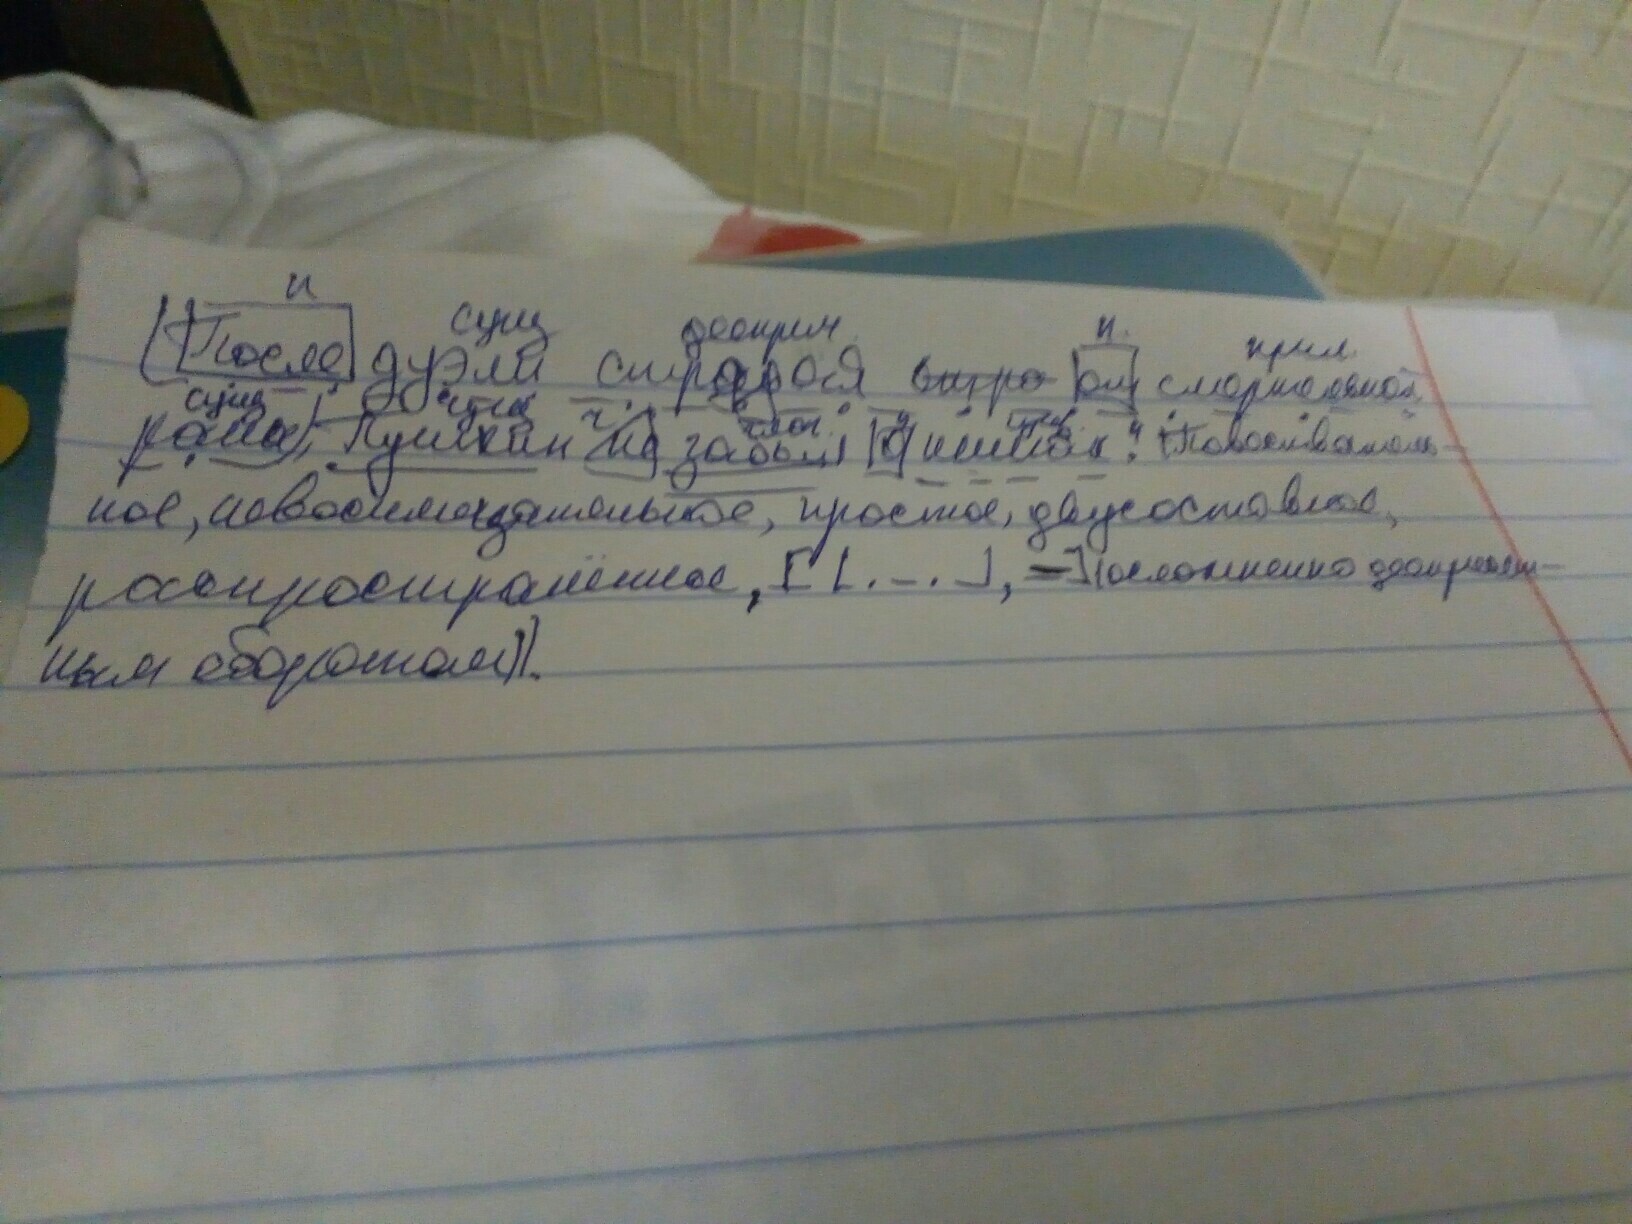 п
сущ дееприч. п. прил.
После дуэли страдая от смертельной
сущ сущ ч глаг. п сущ
раны, Пушкин не забыл о книгах. (Повествователь-
ное, невосклицательное, простое, двусоставное,
распространённое, [|.-.|, =] (осложненно деепричаст-
ным оборотом)).